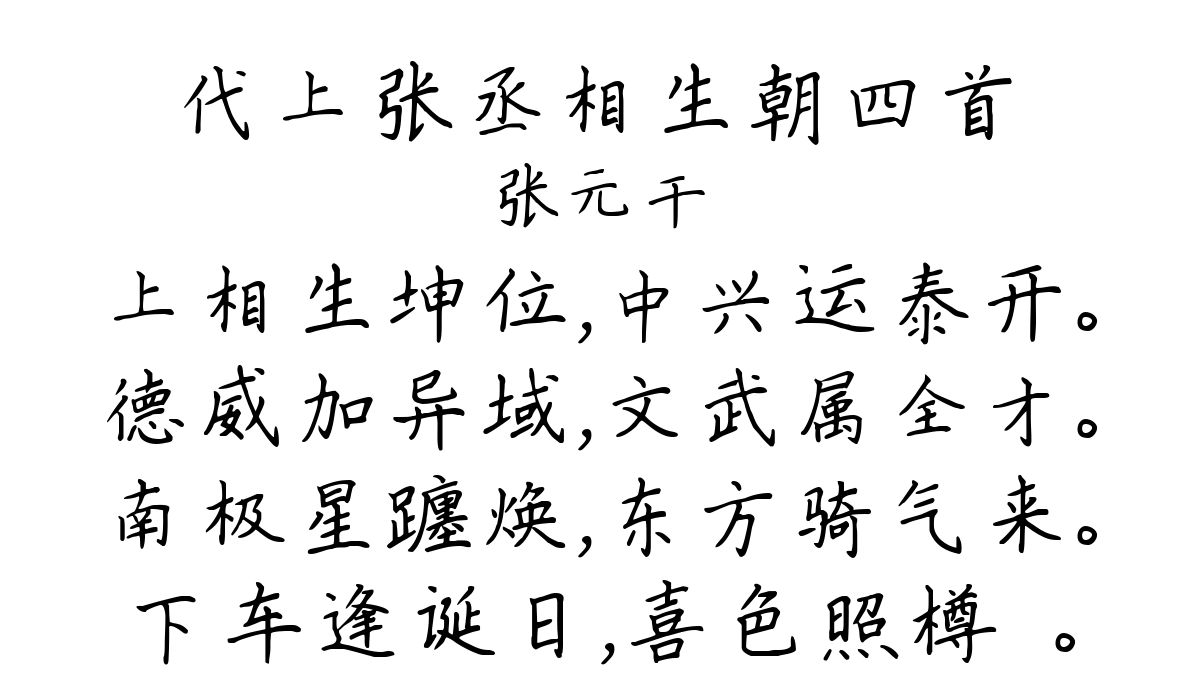 代上张丞相生朝四首
张元干
上相生坤位,中兴运泰开。
德威加异域,文武属全才。
南极星躔焕,东方骑气来。
下车逢诞日,喜色照樽 。